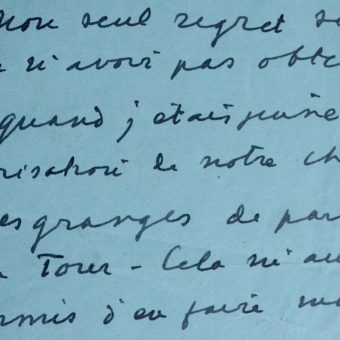 mon seul regret se
n'avoir pas obte
quand j'étais jeune
risation de notre ch
es granges de par
Tour - Cela m'au
rmis d'en faire